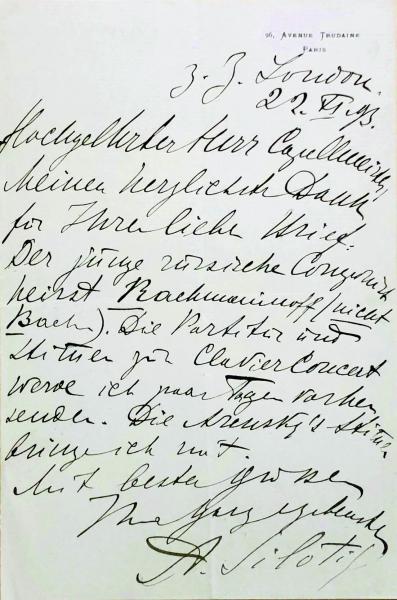 26, AVENUE TRUDAINE
PARIS
z. Z. London.
22. XI. 93.
Hochgeehrter Herr Capellmeister,
Meinen herzlichsten Dank
für Ihren lieben Brief.
Der junge russische Componist
heisst Rachmaninoff (nicht
Bach). Die Partitur und
Stimmen zur Clavier Concert
werde ich paar Tagen vorher
senden. Die Arensky's Stimmen
bringe ich mit.
Mit besten Grüssen
Ihr ganz ergebenster
A. Siloti